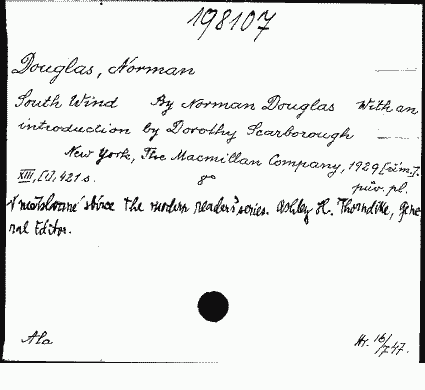 198107
Douglas, Norman
South Wind By Norman Douglas With an
introduction by Dorothy Scarborough
New York, The Macmillan Company, 1929 [rim.].
XIII, [I], 421 s. 8° pův. pl.
V nečíslované sbírce The modern readers' series. Ashley H. Thorndike, Gene
ral Editor.
Ala Hr. 16/747.